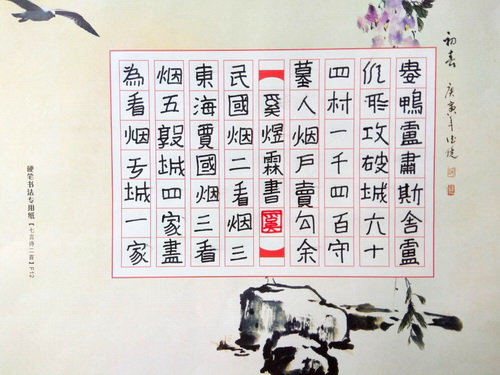 初春 庚寅年
婁鴨盧肅斯舍盧
攻破城六十
四村一千四百守
墓人烟戶賣勾余
奚煜霖書
民國烟二看烟三
東海賈國烟三看
烟五敦城四家盡
為看烟于城一家
硬笔书法专用纸【七言诗二首】F-12